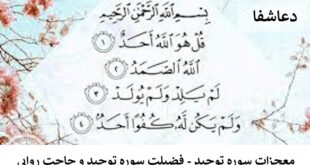 دعاشفا
بِسْمِ اللَّهِ الرَّحْمَنِ الرَّحِيمِ
قُلْ هُوَ اللَّهُ أَحَدٌ ١
اللَّهُ الصَّمَدُ ٢
لَمْ يَلِدْ وَلَمْ يُولَدْ ٣
وَلَمْ يَكُن لَّهُ كُفُوًا أَحَدٌ ٤
معجزات سوره توحید - فضیلت سوره توحید و حاجت روایی